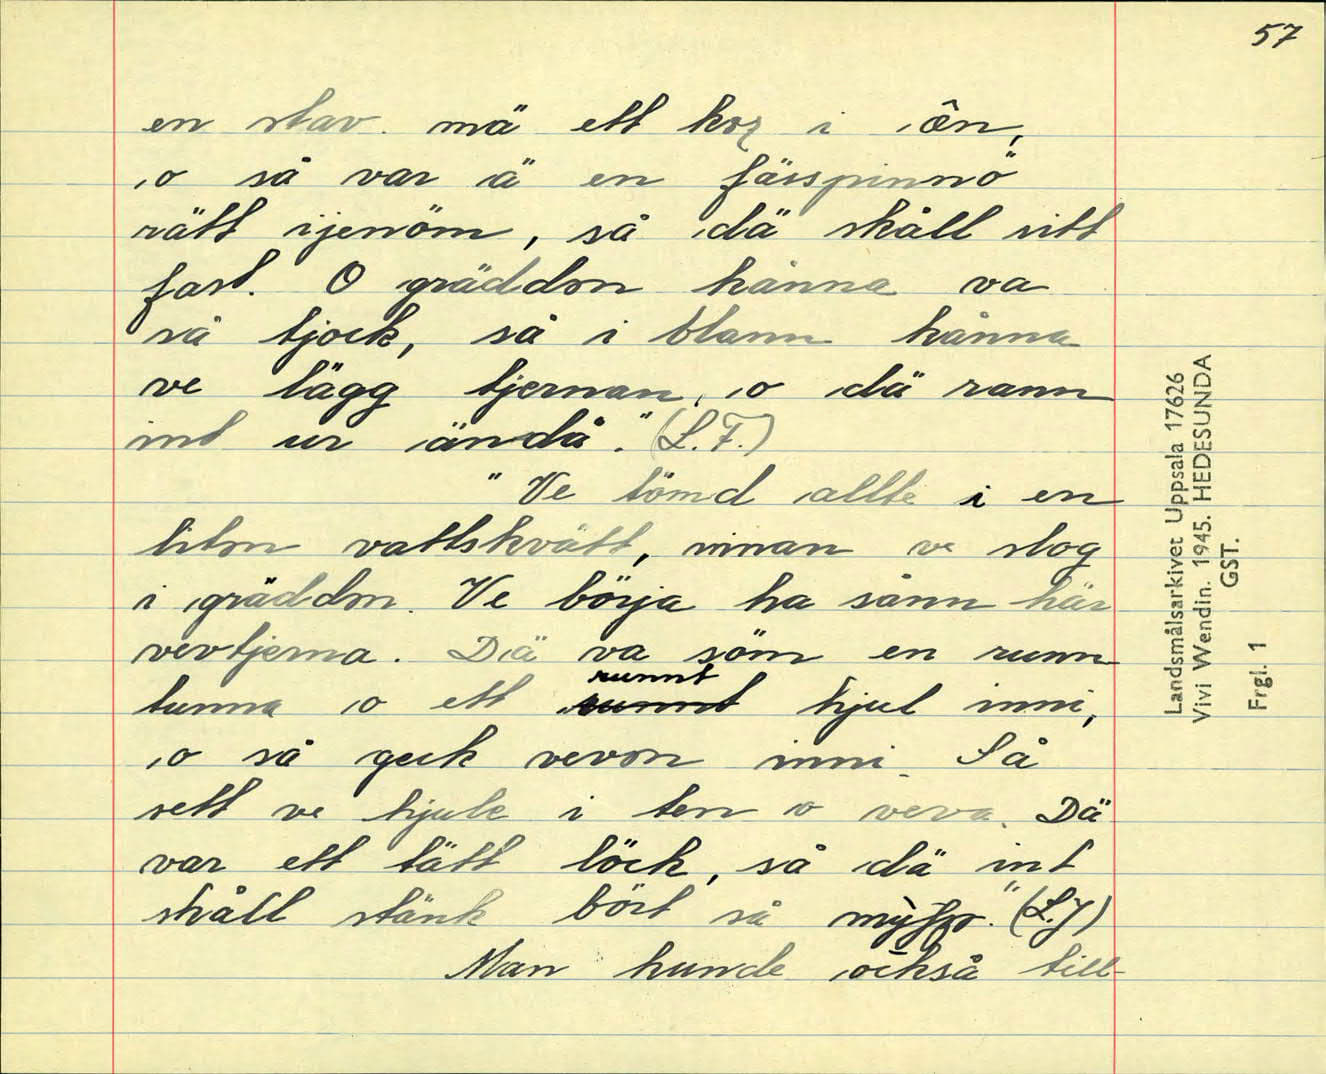 57
en stav mä ett kors i ên,
o så var ä en färspinnö
rätt ijenöm, så dä skåll sitt
fast. O gräddon kånna va
så tjock, så i blann kånna
ve lägg tjernan, o dä rann
int ur ändå." (L.F.)
"Ve tömd allte i en
liton vattskvätt, innan ve slog
i gräddon. Ve börja ha sånn här
vevtjerna. Dä va söm en runn
runnt
tunna o ett hjul inni,
o så geck vevon inni. Så
sett ve hjule i ten o veva. Dä
var ett tätt löck, så dä int
skåll stänk bört så" (L.J)
Man kunde också till-
Landsmålsarkivet Uppsala 17626
Vivi Wendin. 1945. HEDESUNDA
GST.
Frgl. 1